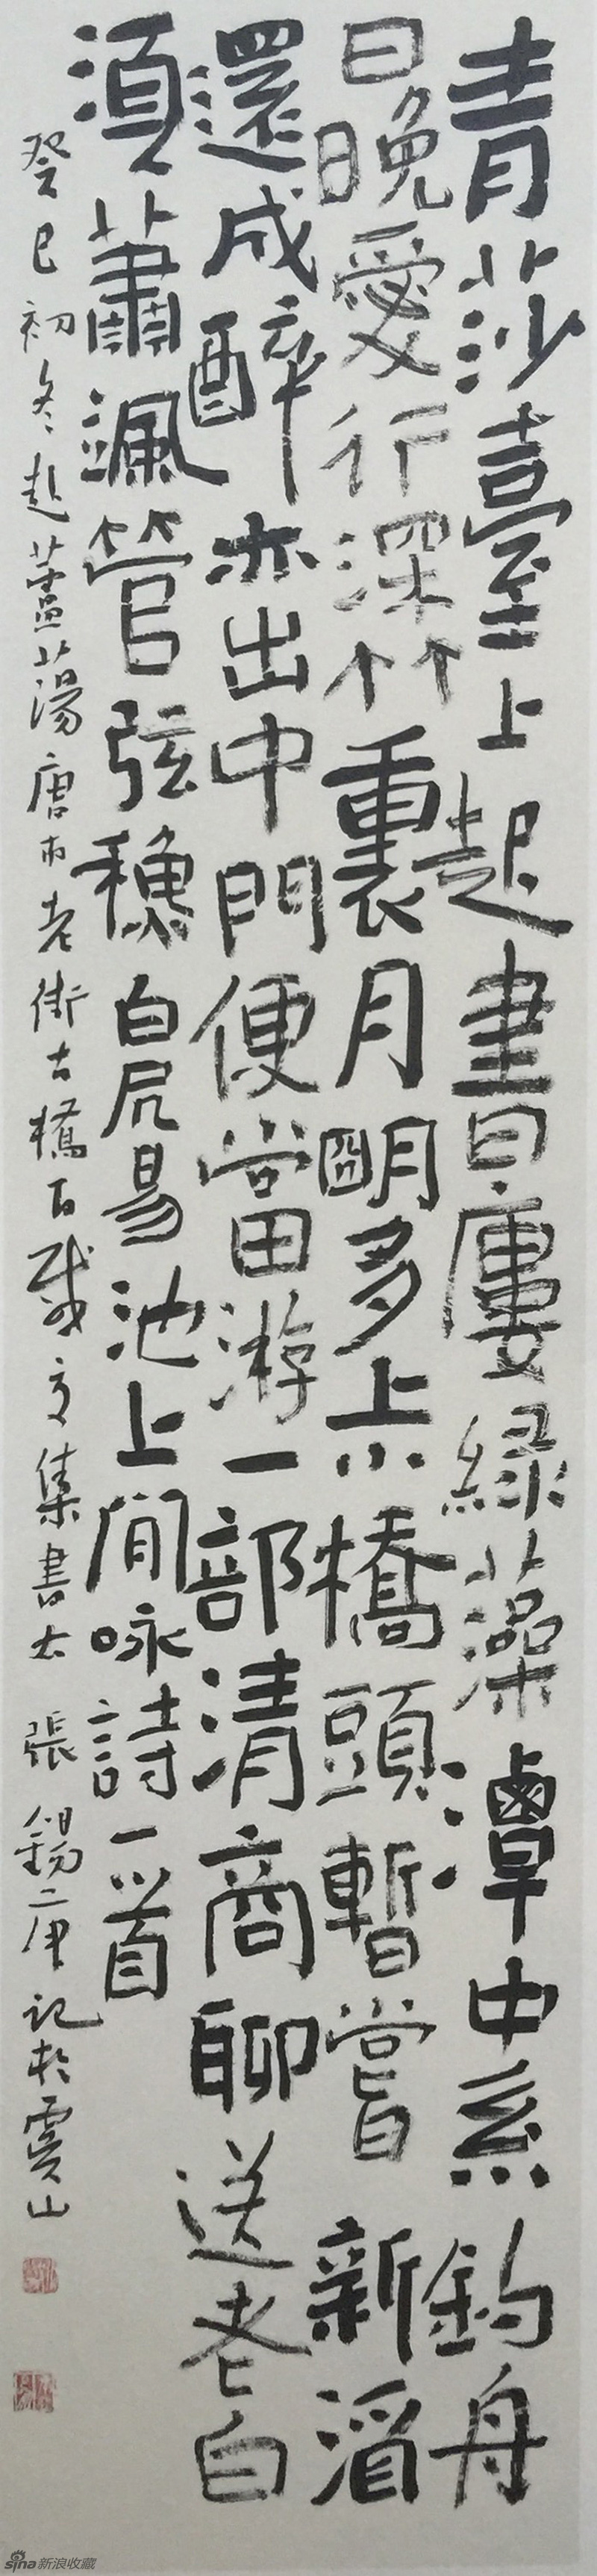 青莎臺上起書廔綠藻潭中系釣舟
日晚愛行深竹裏月明多上小橋頭暫嘗新酒
還成醉亦出中門便當游一部清商聊送老白
須蕭颯管弦穐白居易池上閒咏詩一首
癸巳初冬赴蘆蕩唐市老街古橋百歲集書 張錫庚記於虞山
sina新浪收藏